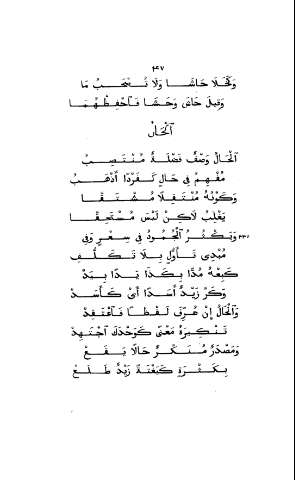 ٤٧
وَكَخَلَا حَاشَا وَلَا تَصْحَبُ مَا
وَقِيلَ حَاشَ وَحَشَا فَاحْفَظْهُمَا
اَلْحَالُ
اَلْحَالُ وَصْفٌ فَضْلَةٌ مُنْتَصِبُ
مُفْهِمُ فِي حَالِ كَفَرْدًا أَذْهَبُ
وَكَوْنُهُ مُنْتَقِلًا مُشْتَقَّا
يَغْلِبُ لَاكِنْ لَيْسَ مُسْتَحِقَّا
وَيَكْثُرُ الْجُمُودُ فِي سِعْرٍ وَفِي
مُبْدِي تَأَوُّلٍ بِلَا تَكَلُّفِ
كَبِعْهُ مُدًّا بِكَذَا يَدًا بِيَدْ
وَكَرَّ زَيْدٌ أَسَدًا أَىْ كَأَسَدْ
وَالْحَالُ إِنْ عُرِّفَ لَفْظًا فَاعْتَقِدْ
تَنْكِيرَهُ مَعْنًى كَوَحْدَكَ اجْتَهِدْ
وَمَصْدَرٌ مُنَكَّرٌ حَالًا يَقَعْ
بِكَثْرَةٍ كَبَغْتَةً زَيْدٌ طَلَعْ